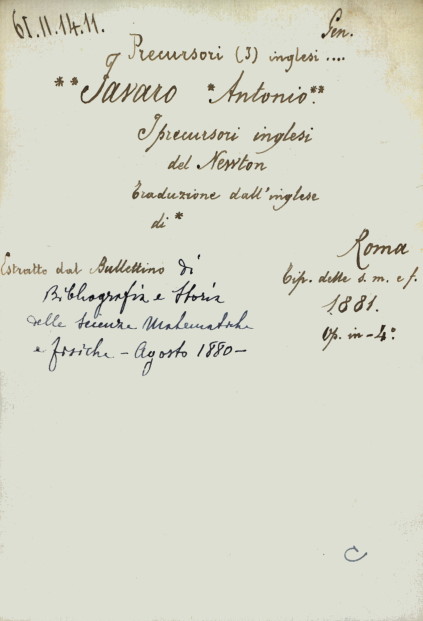 61.II.14.11.
Gen.
Precursori (I) inglesi ....
** Favaro *Antonio.**
I precursori inglesi
del Newton
Traduzione dall'inglese
di *
Roma
Estratto dal Bullettino di
Bibliografia e Storia
delle Scienze Matematiche
e fisiche - Agosto 1880 -
Tip. delle s. m. e f.
1881.
Op. in - 4°
C